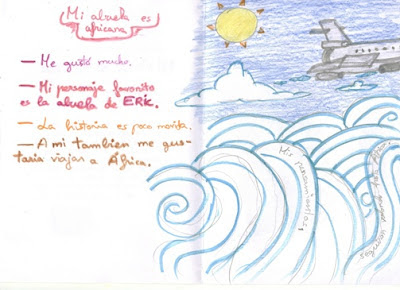 Mi abuela es
africana
— Me gustó mucho.
— Mi personaje favorito
es la abuela de ERIC.
— La historia es poco movida.
— A mi tambien me gus-
taria viajar a África.